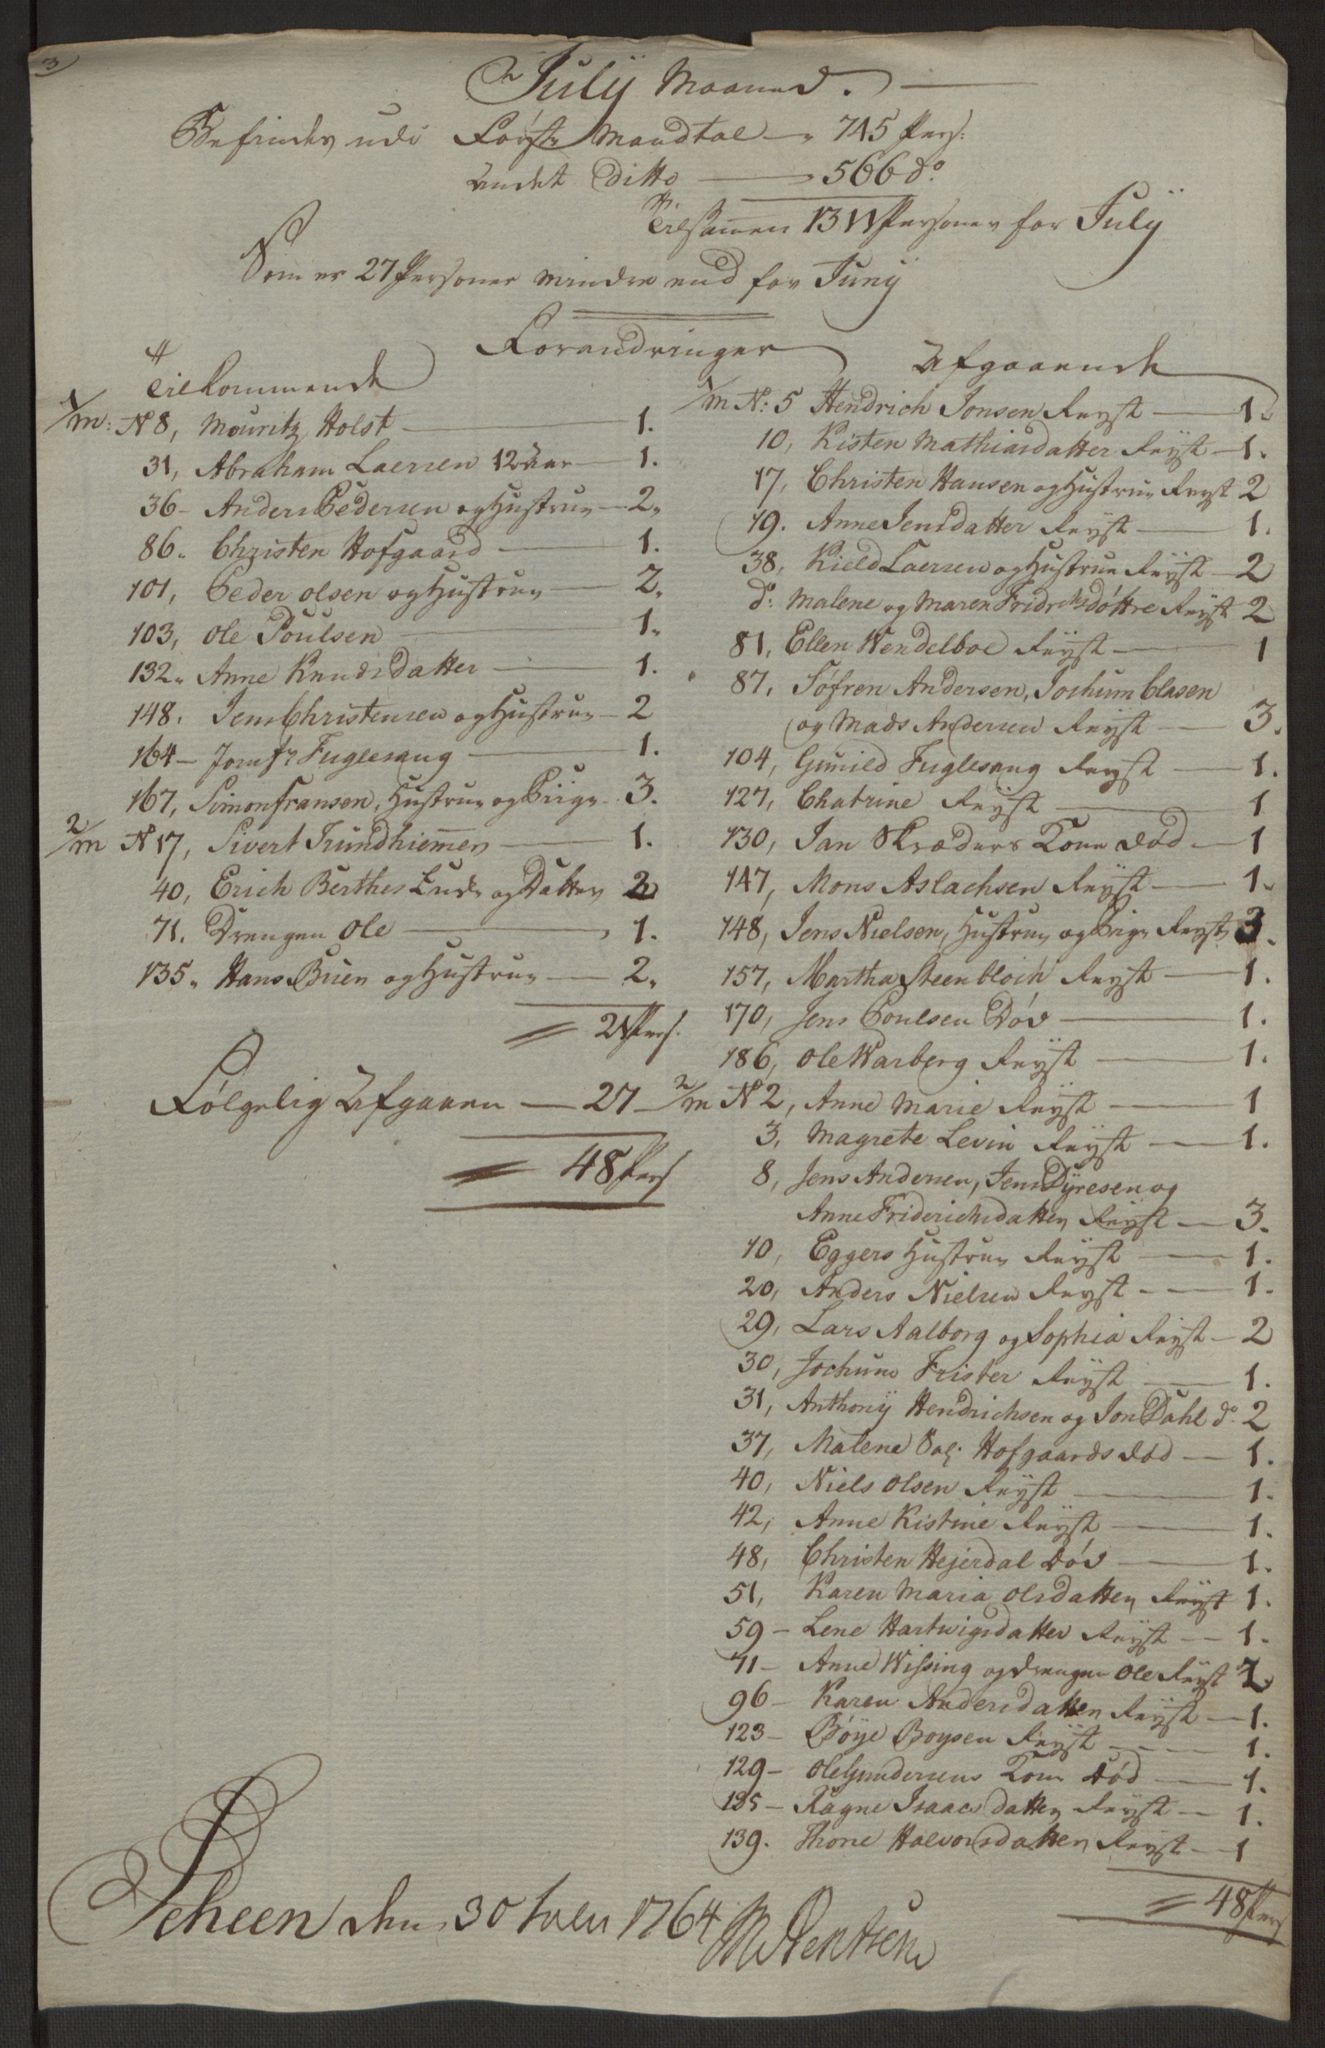 3
July Maaned.
Befindes udi Første Mandtal — 745 Pers:
Andet Ditto — 566 do.
Tilsamen 1311 Personer for July
Som er 27 Personer mindre end for Juny
Forandringer
Tilkommende
1/m: No 8, Mouritz Holst — 1.
31, Abraham Laersen 12 Aar — 1.
36 - Anders Pedersen og Hustrue — 2.
86. Christen Hofgaard — 1.
101, Peder Olsen og Hustrue — 2.
103, Ole Poulsen — 1.
132. Anne Knudsdatter — 1.
148. Jens Christensen og Hustrue — 2
164 — Jomfr Fuglesang — 1.
167, Simon Fransen, Hustrue og Piige - 3.
2/m No 17, Sivert Trundhiemmen — 1.
40, Erich Berthes Lude og Datter 2
71. Drengen Ole — 1.
135. Hans Buen og Hustrue — 2.
= 21 Pers.
Følgelig Afgaaen — 27
= 48 Pers
Afgaaende
1/m N: 5 Hendrich Jonsen Reyst — 1.
10, Kisten Mathiasdatter Reyst — 1.
17, Christen Hansen og Hustrue Reyst 2
19. Anne Jensdatter Reyst — 1.
38, Kield Laersen og Hustrue Reyst — 2
do: Malene og Maren Fridrichsdøttre Reyst 2
81, Ellen Wendelboe Reyst — 1
87, Søfren Andersen, Jochum Clasen
og Mads Andersen Reyst — 3.
104, Gunild Fuglesang Reyst — 1.
127, Chatrine Reyst — 1
130, Jan Skræders Kone Død — 1
147, Mons Aslachsen Reyst — 1.
148, Jens Nielsen, Hustrue og Piige Reyst 3.
157, Martha Steenbloch Reyst — 1.
170, Jens Poulsen Død — 1.
186, Ole Warberg Reyst — 1.
2/m No 2, Anne Marie Reyst — 1
3, Magrete Levin Reyst — 1.
8, Jens Andersen, Jens Dyresen og
Anne Friderichsdatter Reyst — 3.
10, Eggers Hustrue Reyst — 1.
20, Anders Nielsen Reyst — 1.
29, Lars Aalborg og Sophia Reyst — 2
30, Jochum Frister Reyst — 1.
31, Anthony Hendrichsen og Jon Dahl do. 2
37, Malene Sal: Hofgaards Død — 1.
40, Niels Olsen Reyst — 1.
42, Anne Kistine Reyst — 1.
48, Christen Hejerdal Død — 1.
51, Karen Maria Olsdatter Reyst 1.
59 — Lene Hartwigsdatter Reyst — 1.
71 — Anne Wissing og Drengen Ole Reyst 2
96 — Karen Andersdatter Reyst — 1.
123 — Bøye Boysen Reyst — 1.
129 — Ole Gundersens Kone Død — 1.
135 — Ragne Isaacsdatter Reyst — 1.
139. Thone Halvorsdatter Reyst — 1
= 48 Pers
Scheen den 30 Julii 1764